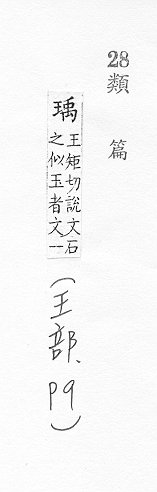 28
類篇
瑀王矩切說文石
之似玉者文一
(王部、p9)